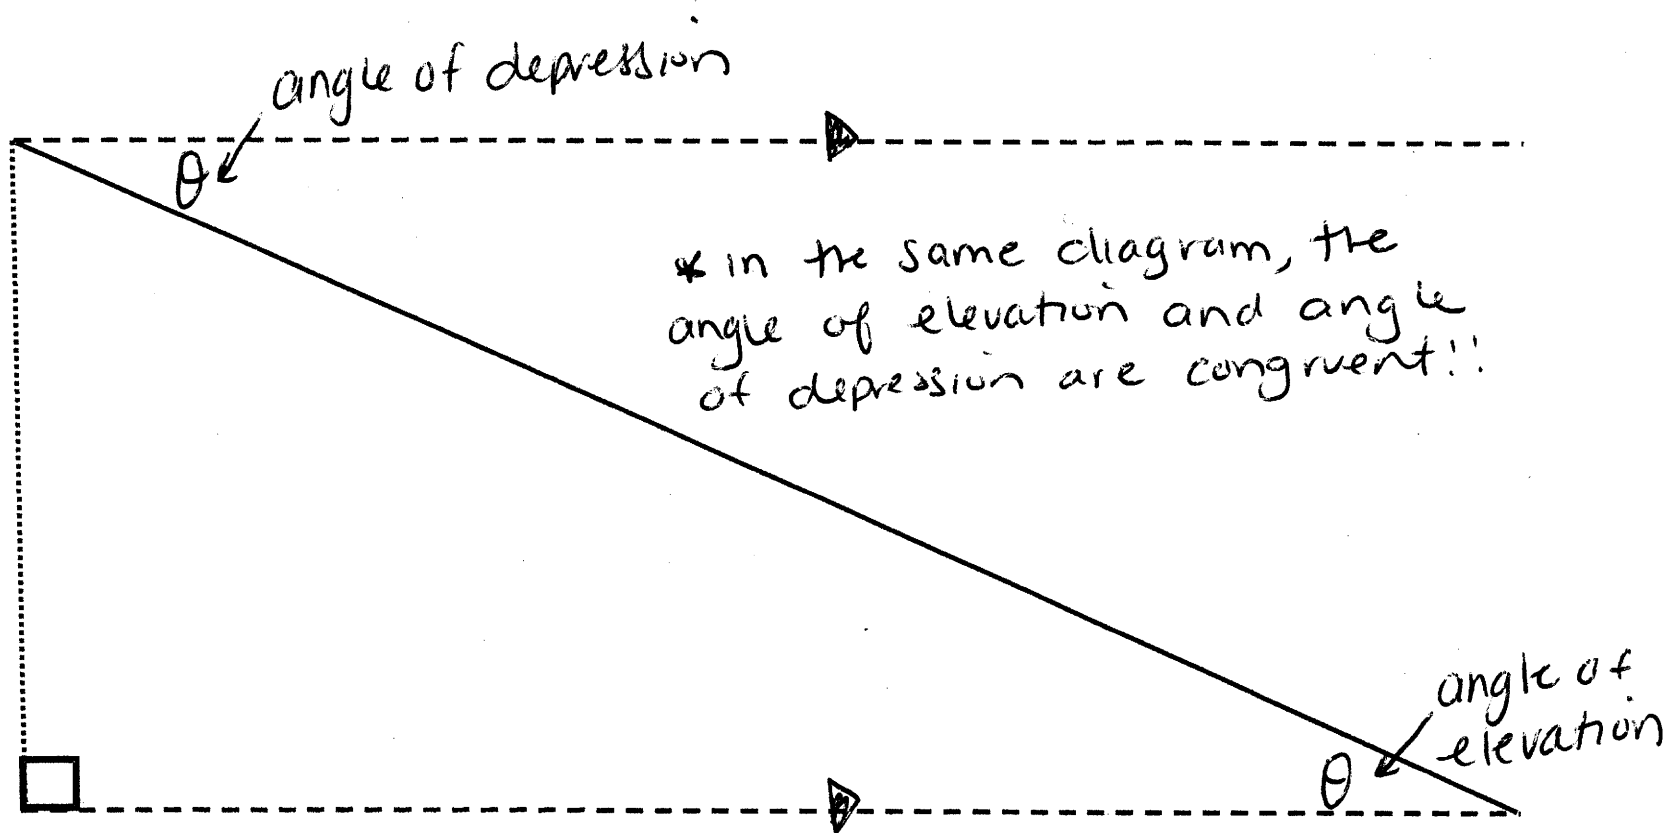 angle of depression
θ
* in the same diagram, the
angle of elevation and angle
of depression are congruent!!
angle of
elevation
θ